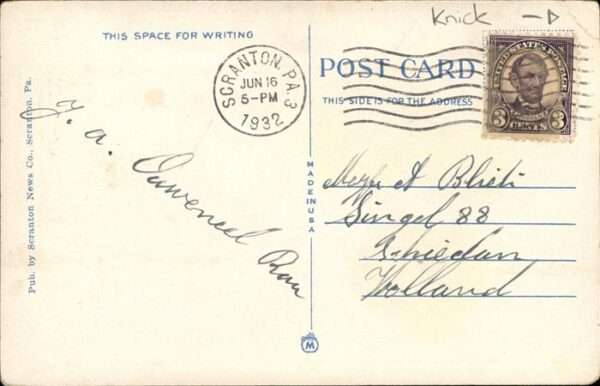 Knick
THIS SPACE FOR WRITING
SCRANTON, PA. 3
JUN 16
5-PM
1932
POST CARD
THIS SIDE IS FOR THE ADDRESS
UNITED STATES POSTAGE
3 CENTS 3
J. A.
MADE IN USA
A
Singel 88
Schiedam
Holland
Pub. by Scranton News Co., Scranton, Pa.
M